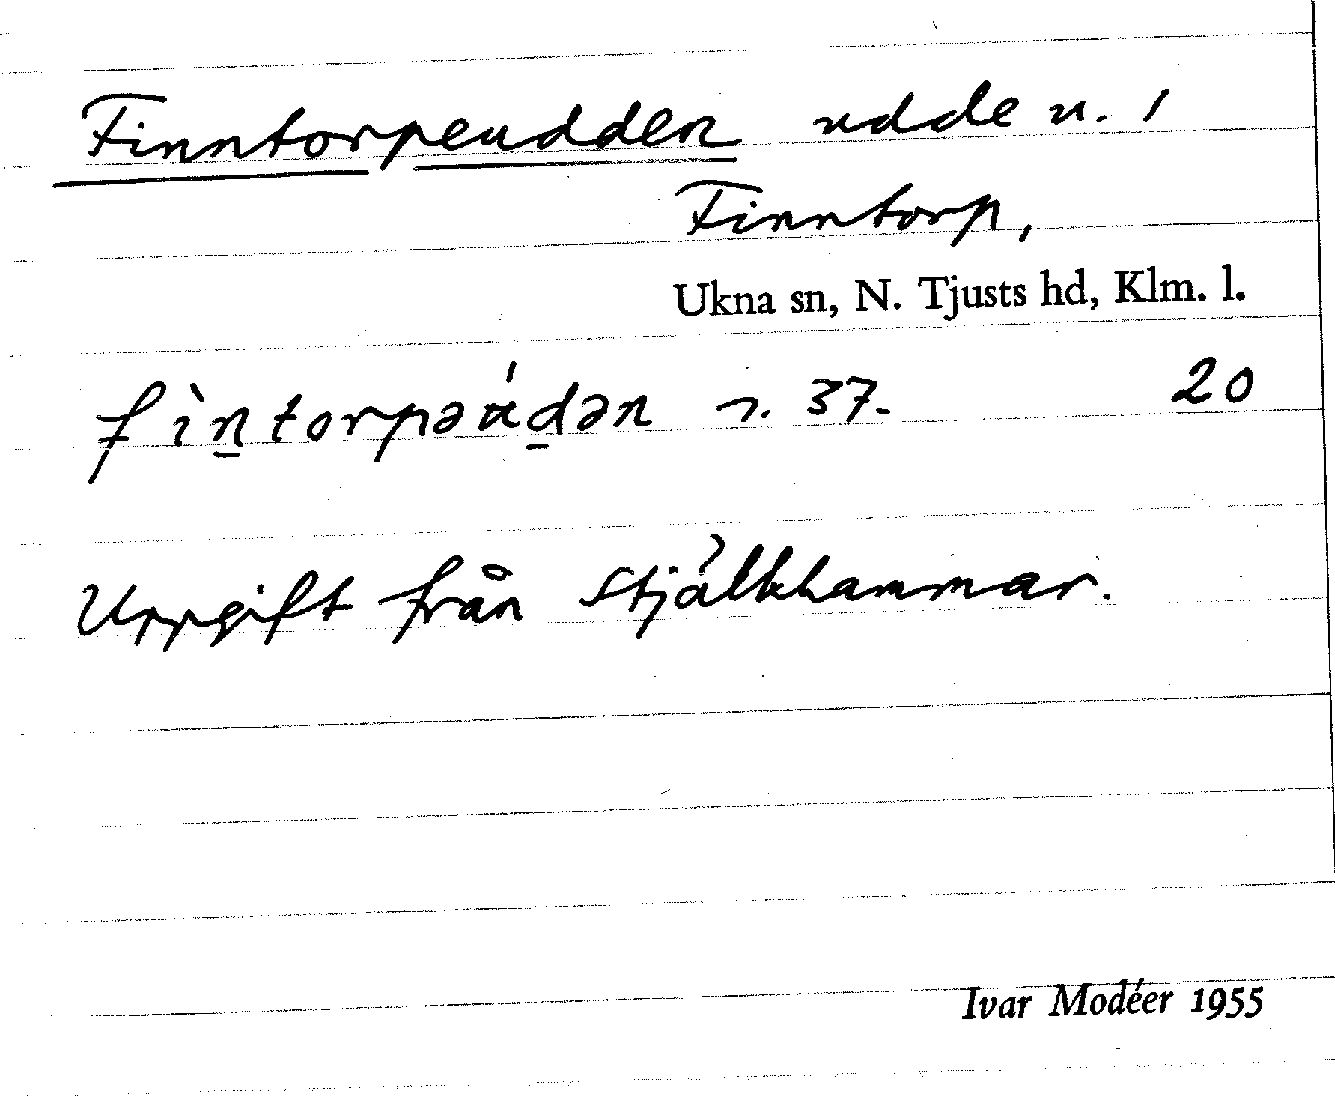 Finntorpeudden udde n. 1
Finntorp,
Ukna sn, N. Tjusts hd, Klm. l.
fìn̲torpəʉ́d̲ən n. 37. 20
Uppgift från Stjälkhammar.
Ivar Modéer 1955